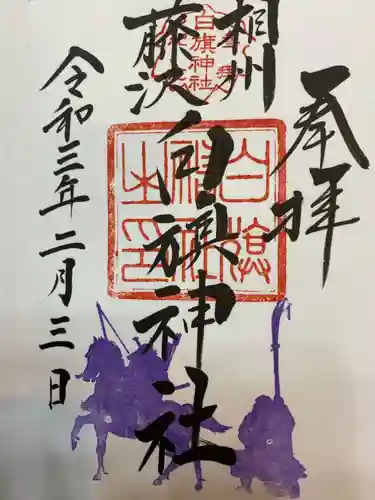 奉拝
相州
藤沢
白旗神社
令和三年二月三日
白旗神社
白旗神社之印